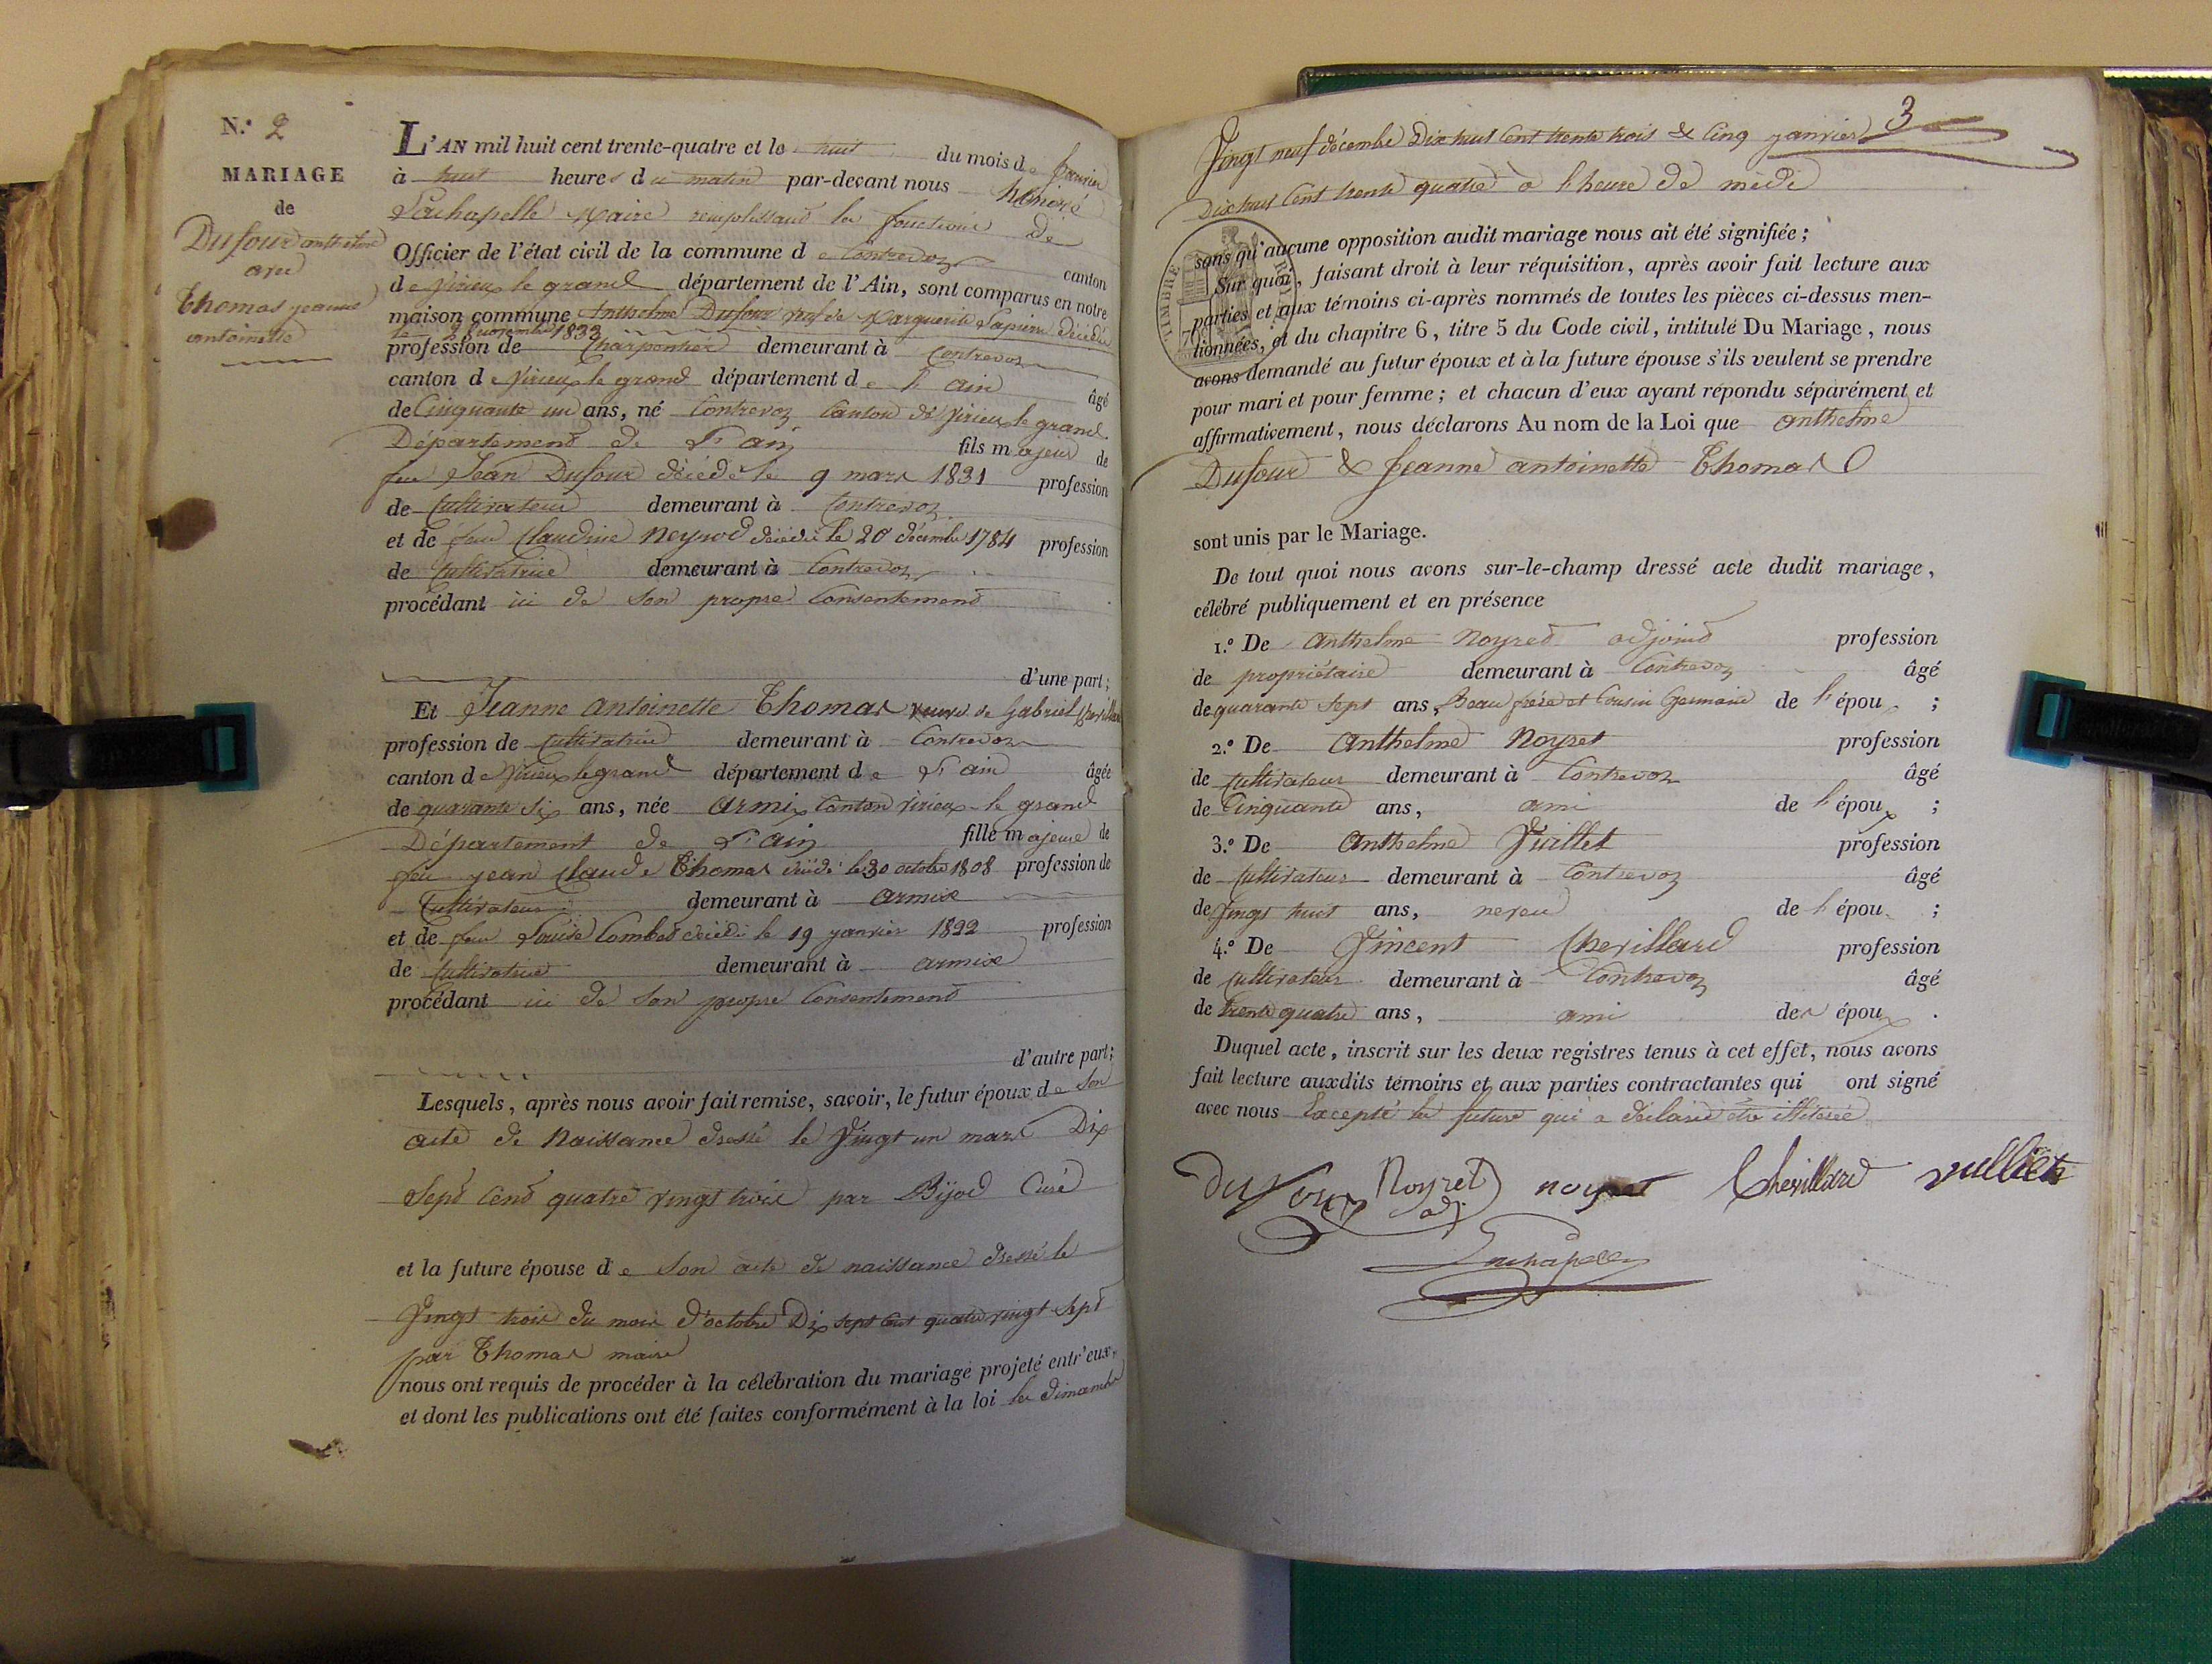 N.° 2
MARIAGE
de
Dufour anthelme
avec
Thomas jeanne
antoinette
L'AN mil huit cent trente-quatre et le huit du mois de janvier
à huit heures du matin par-devant nous honoré
Lachapelle Maire remplissant les fonctions de
Officier de l'état civil de la commune de Contrevoz canton
de Virieu le grand département de l'Ain, sont comparus en notre
maison commune Anthelme Dufour veuf de Marguerite décédée
le novembre 1833
profession de Charpentier demeurant à Contrevoz
canton de Virieu le grand département de l'ain âgé
de Cinquante un ans, né Contrevoz Canton de Virieu le grand
Département de L'ain fils majeur de
feu Jean Dufour décédé le 9 mars 1831 profession
de Cultivateur demeurant à Contrevoz
et de feue Claudine Neyrod décédée le 20 décembre 1784 profession
de Cultivatrice demeurant à Contrevoz
procédant ici de son propre Consentement
d'une part;
Et Jeanne Antoinette Thomas veuve de Gabriel
profession de Cultivatrice demeurant à Contrevoz
canton de Virieu le grand département de L'ain âgée
de quarante six ans, née Armix Canton Virieu-le grand
Département de L'ain fille majeure de
feu jean Claude Thomas décédé le 30 octobre 1808 profession de
Cultivateur demeurant à Armix
et de feue Louise Combet décédée le 19 janvier 1822 profession
de Cultivatrice demeurant à armix
procédant ici de son propre Consentement
d'autre part;
Lesquels, après nous avoir fait remise, savoir, le futur époux de son
acte de Naissance dressé le Vingt un mars Dix
Sept Cent quatre vingt trois par Bijod Curé
et la future épouse de son acte de naissance dressé le
Vingt trois du mois d'octobre Dix sept cent quatre vingt sept
par Thomas maire
nous ont requis de procéder à la célébration du mariage projeté entr'eux,
et dont les publications ont été faites conformément à la loi les dimanches
3
Vingt neuf décembre Dix huit Cent trente trois & Cinq janvier
Dix huit Cent trente quatre à l'heure de midi
TIMBRE
sans qu'aucune opposition audit mariage nous ait été signifiée;
Sur quoi, faisant droit à leur réquisition, après avoir fait lecture aux
parties et aux témoins ci-après nommés de toutes les pièces ci-dessus men-
tionnées, et du chapitre 6, titre 5 du Code civil, intitulé Du Mariage, nous
avons demandé au futur époux et à la future épouse s'ils veulent se prendre
pour mari et pour femme; et chacun d'eux ayant répondu séparément et
affirmativement, nous déclarons Au nom de la Loi que anthelme
Dufour & Jeanne antoinette Thomas
sont unis par le Mariage.
De tout quoi nous avons sur-le-champ dressé acte dudit mariage,
célébré publiquement et en présence
1.° De Anthelme Noyret adjoint profession
de propriétaire demeurant à Contrevoz âgé
de quarante sept ans, Beau frère et Cousin Germain de l'épou ;
2.° De Anthelme Noyret profession
de Cultivateur demeurant à Contrevoz âgé
de Cinquante ans, ami de l'époux ;
3.° De Anthelme Vuillet profession
de Cultivateur demeurant à Contrevoz âgé
de Vingt huit ans, neveu de l'épou ;
4.° De Vincent Chevillard profession
de Cultivateur demeurant à Contrevoz âgé
de trente quatre ans, ami des époux .
Duquel acte, inscrit sur les deux registres tenus à cet effet, nous avons
fait lecture auxdits témoins et aux parties contractantes qui ont signé
avec nous Excepté la future qui a déclaré être illiterée
Dufour Noyret adj noyret Chevillard vulliet
Lachapelle